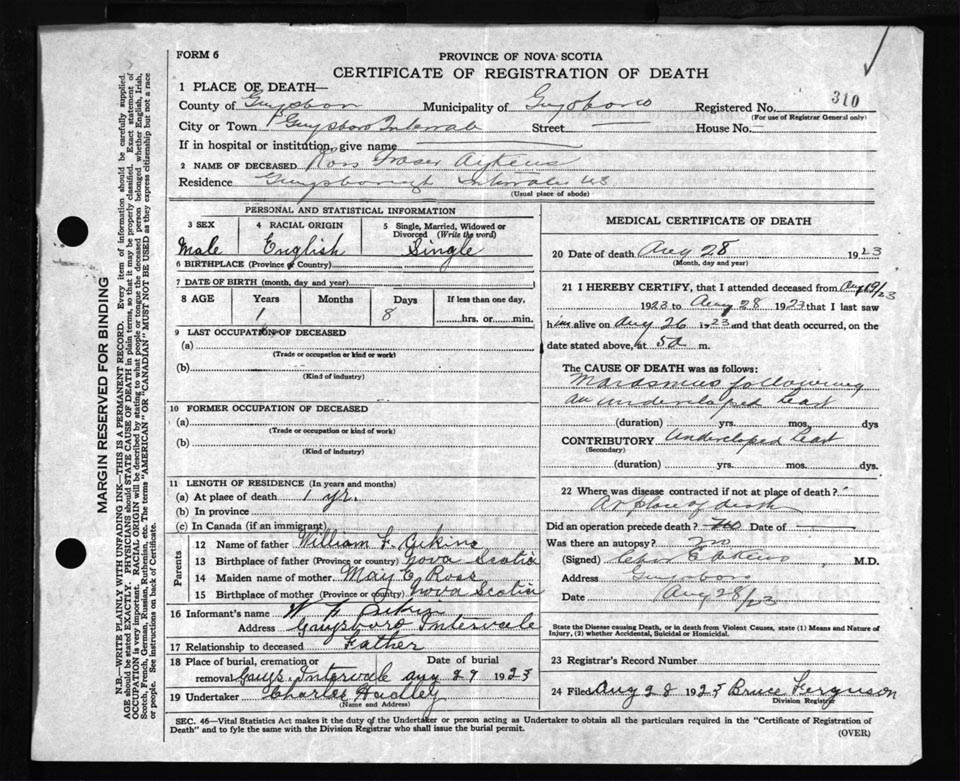 FORM 6
PROVINCE OF NOVA SCOTIA
CERTIFICATE OF REGISTRATION OF DEATH
1 PLACE OF DEATH—
County of Guysboro Municipality of Guysboro Registered No. 310
(For use of Registrar General only)
City or Town Guysboro Intervale Street — House No. —
If in hospital or institution, give name —
2 NAME OF DECEASED Ross Fraser Aikens
Residence Guysborough Intervale NS
(Usual place of abode)
PERSONAL AND STATISTICAL INFORMATION
3 SEX 4 RACIAL ORIGIN 5 Single, Married, Widowed or Divorced (Write the word)
Male English Single
6 BIRTHPLACE (Province or Country)
7 DATE OF BIRTH (month, day and year)
8 AGE Years Months Days If less than one day,
1 8 hrs. or min.
9 LAST OCCUPATION OF DECEASED
(a)
(Trade or occupation or kind or work)
(b)
(Kind of industry)
10 FORMER OCCUPATION OF DECEASED
(a)
(Trade or occupation or kind or work)
(b)
(Kind of industry)
11 LENGTH OF RESIDENCE (In years and months)
(a) At place of death 1 yr.
(b) In province
(c) In Canada (if an immigrant)
Parents
12 Name of father William F. Aikins
13 Birthplace of father (Province or country) Nova Scotia
14 Maiden name of mother May E Ross
15 Birthplace of mother (Province or country) Nova Scotia
16 Informant's name W F Aikins
Address Guysboro Intervale
17 Relationship to deceased Father
18 Place of burial, cremation or Date of burial
removal Guys. Intervale Aug 29 1923
19 Undertaker Charles Hadley
(Name and Address)
MEDICAL CERTIFICATE OF DEATH
20 Date of death Aug 28 1923
(Month, day and year)
21 I HEREBY CERTIFY, that I attended deceased from Aug 19/23
1923 to Aug 28 1923 that I last saw
him alive on Aug 26 1923 and that death occurred, on the
date stated above, at 5a m.
The CAUSE OF DEATH was as follows:
Marasmus following
an undeveloped heart
(duration) yrs. mos. dys
CONTRIBUTORY Undeveloped heart
(Secondary)
(duration) yrs. mos. dys.
22 Where was disease contracted if not at place of death?
At place of death
Did an operation precede death? no Date of
Was there an autopsy? no
(Signed) M.D.
Address Guysboro
Date Aug 28/23
State the Disease causing Death, or in death from Violent Causes, state (1) Means and Nature of
Injury, (2) whether Accidental, Suicidal or Homicidal.
23 Registrar's Record Number
24 Filed Aug 28 1923 Bruce Ferguson
Division Registrar
SEC. 46—Vital Statistics Act makes it the duty of the Undertaker or person acting as Undertaker to obtain all the particulars required in the "Certificate of Registration of
Death" and to fyle the same with the Division Registrar who shall issue the burial permit.
(OVER)
MARGIN RESERVED FOR BINDING
N.B.—WRITE PLAINLY WITH UNFADING INK—THIS IS A PERMANENT RECORD. Every item of information should be carefully supplied.
AGE should be stated EXACTLY. PHYSICIANS should STATE CAUSE OF DEATH in plain terms, so that it may be properly classified. Exact statement of
OCCUPATION is very important. RACIAL ORIGIN will be described by stating to what people or tongue the deceased person belonged, whether English, Irish,
Scotch, French, German, Russian, Ruthenian, etc. The terms "AMERICAN" OR "CANADIAN" MUST NOT BE USED as they express citizenship but not a race
or people. See instructions on back of Certificate.